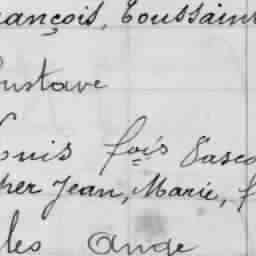 ançois, Toussain
ustave
ouis fois Vasco
her Jean, Marie, f
les Ange